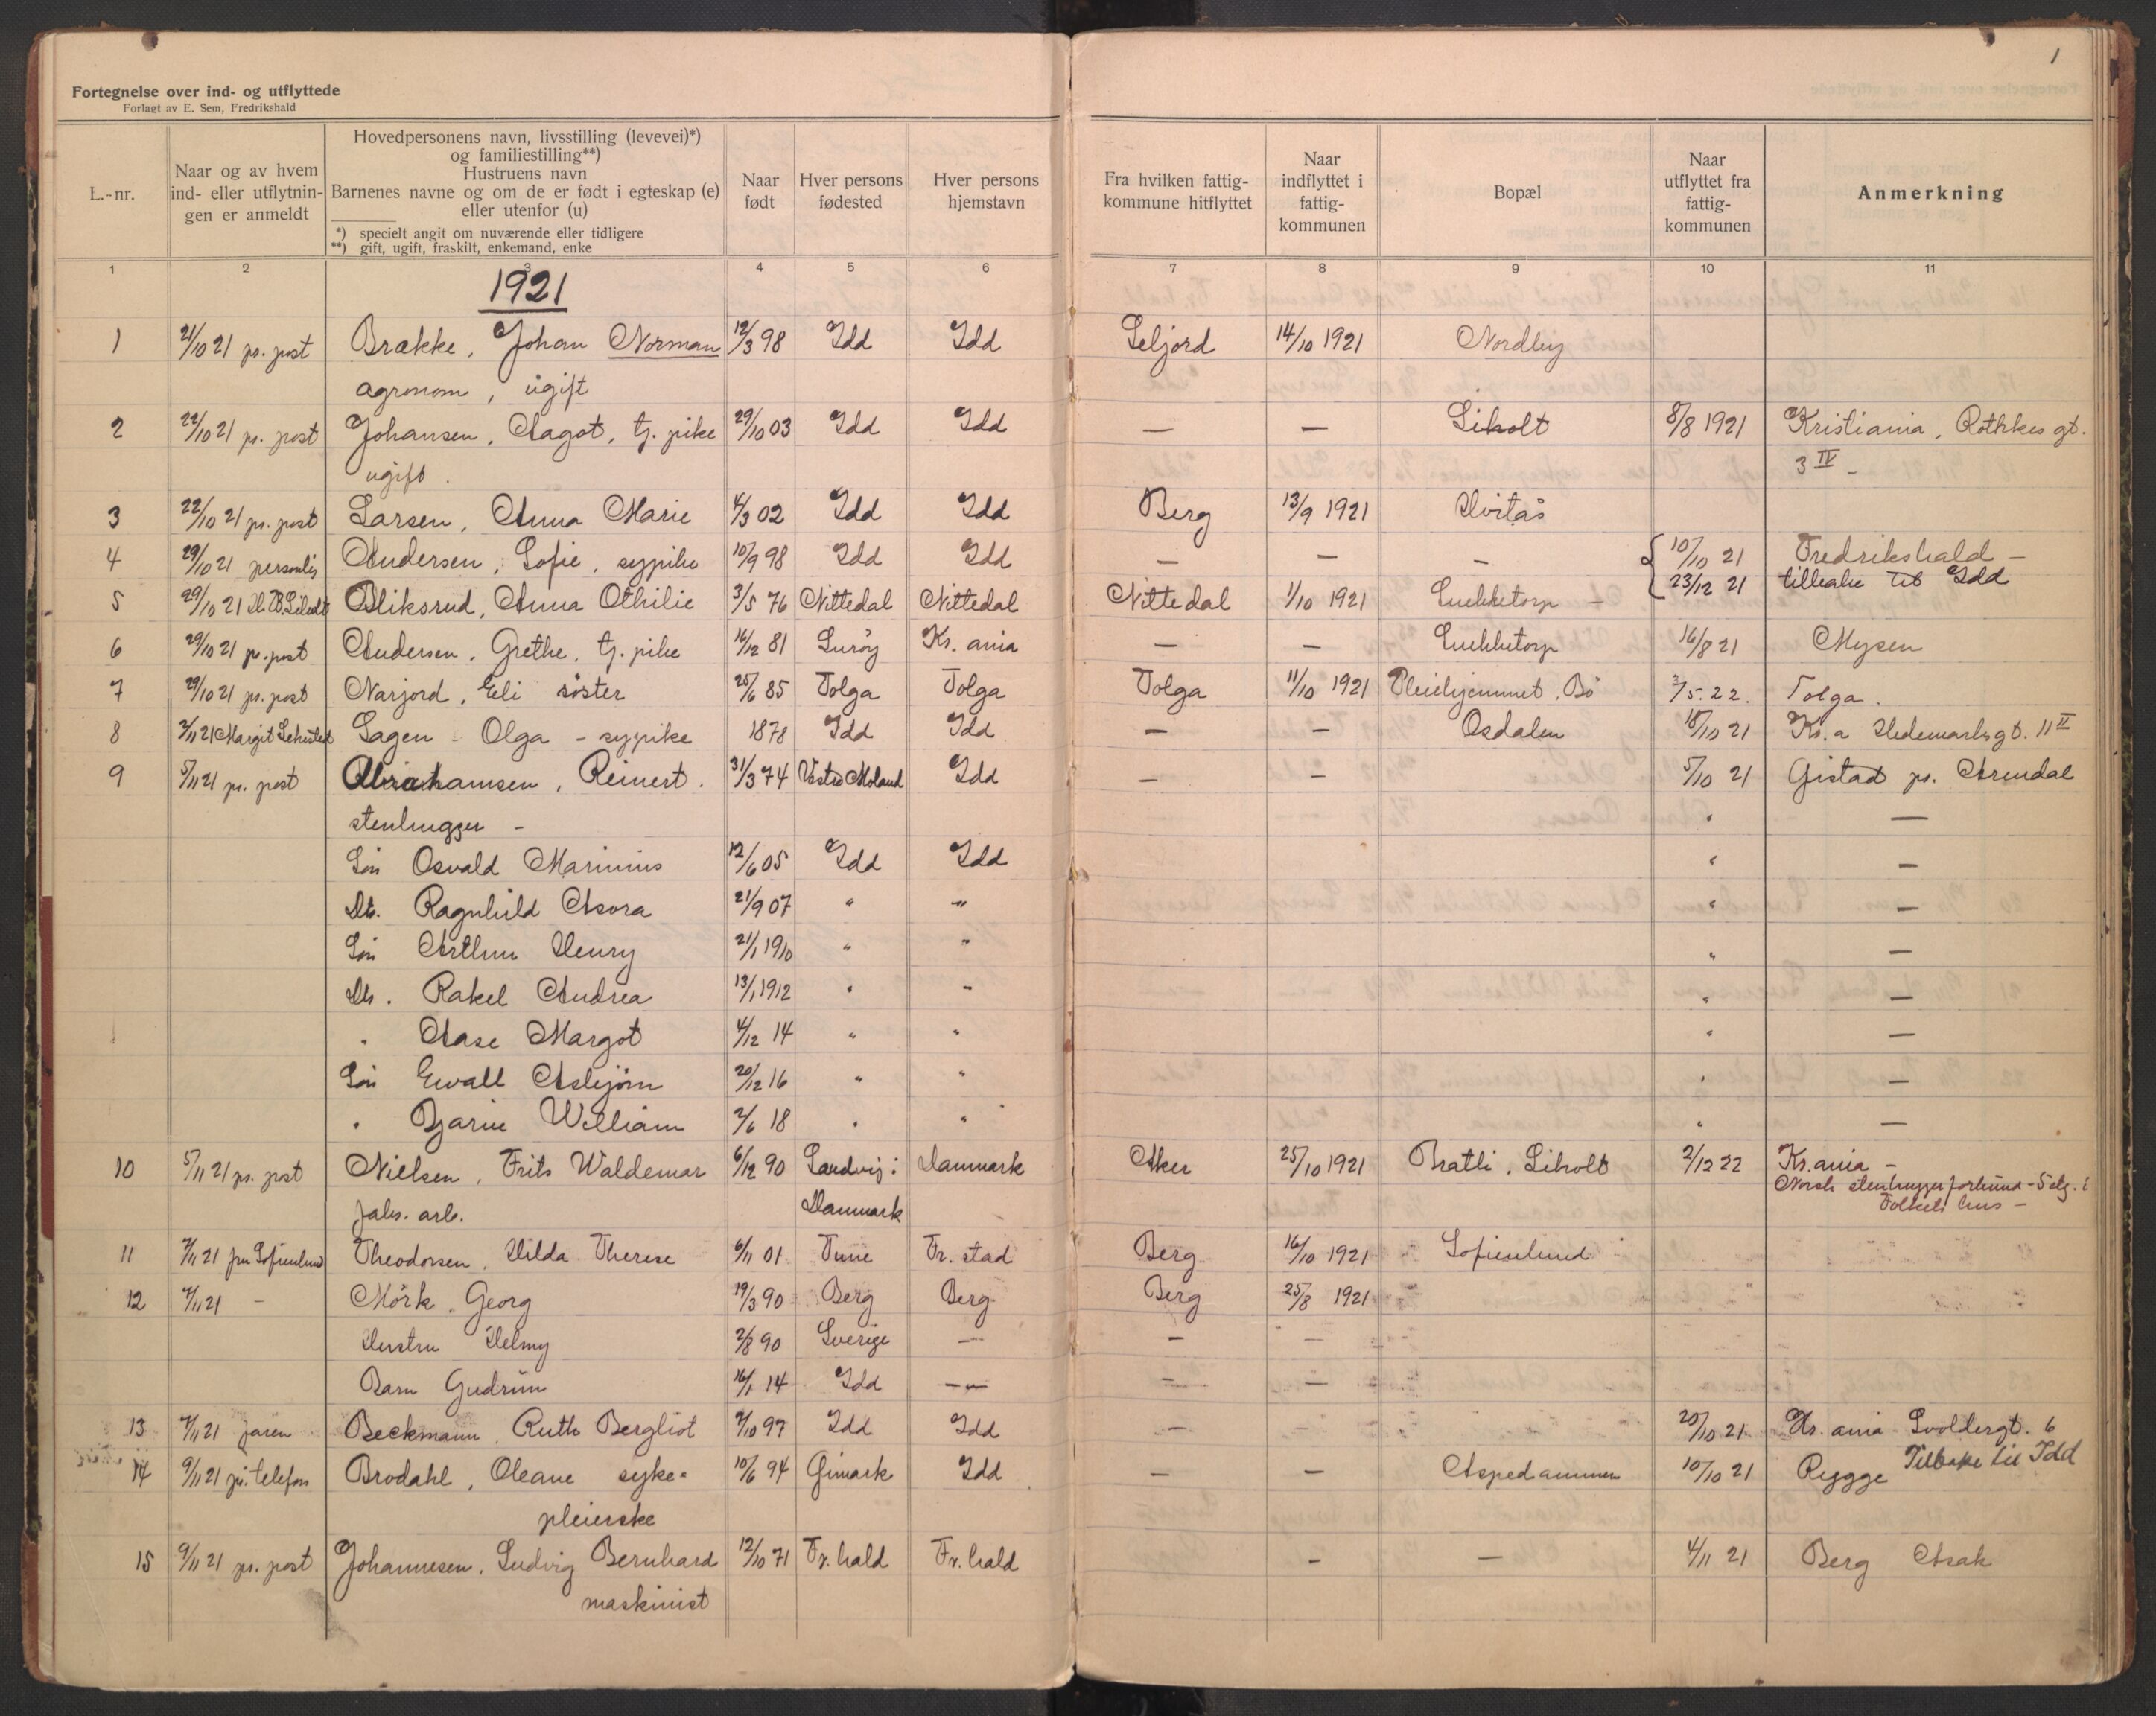 1
Fortegnelse over ind- og utflyttede
Forlagt av E. Sem, Fredrikshald
L.-nr. Naar og av hvem ind- eller utflytnin-gen er anmeldt
Hovedpersonens navn, livsstilling (levevei)*)
og familiestilling**)
Hustruens navn
Barnenes navne og om de er født i egteskap (e)
eller utenfor (u)
*) specielt angit om nuværende eller tidligere
**) gift, ugift, fraskilt, enkemand, enke
Naar født Hver persons fødested Hver persons hjemstavn Fra hvilken fattig-kommune hitflyttet Naar indflyttet i fattig-kommunen Bopæl Naar utflyttet fra fattig-kommunen Anmerkning
1 2 3 4 5 6 7 8 9 10 11
1921
1 21/10 21 pr. post Brække, Johan Norman 12/3 98 Idd Idd Seljord 14/10 1921 Nordby
agronom, ugift
2 22/10 21 pr. post Johansen, Aagot, tj. pike 29/10 03 Idd Idd — — Liholt 8/8 1921 Kristiania, Rathkes gt.
ugift. 3 IV -
3 22/10 21 pr. post Larsen, Anna Marie 4/3 02 Idd Idd Berg 13/9 1921 Hvitås
4 29/10 21 personlig Andersen, Sofie, sypike 10/9 98 Idd Idd — — — { 10/10 21 Fredrikshald —
23/12 21 tilbake til Idd
5 29/10 21 Bliksrud, Anna Othilie 3/5 76 Nittedal Nittedal Nittedal 1/10 1921 Enekketorp -
6 29/10 21 pr. post Andersen, Grethe, tj. pike 16/12 81 Lurøy Kr. ania — — Enekketorp 16/8 21 Mysen
7 29/10 21 pr. post Narjord, Eli søster 25/6 85 Tolga Tolga Tolga 11/10 1921 Pleiehjemmet, Bø 3/5. 22. Tolga.
8 3/11 21 Margit Sehested Sagen - Olga - sypike 1878 Idd Idd — — Osdalen 18/10 21 Kr.a Hedemarksgt. 11 II
9 5/11 21 pr. post Abrahamsen, Reinert. 31/3 74 Vestre Moland Idd — — 5/10 21 Gistad pr. Arendal
stenhugger - " —
Søn Osvald Marinius 12/6 05 Idd Idd " —
Dt. Ragnhild Asora 21/9 07 " " " —
Søn Arthur Henry 21/1 1910 " " " —
Dt. Rakel Andrea 13/1 1912 " " " —
" Aase Margot 4/12 14 " " " —
Søn Ewall Asbjørn 20/12 16 " " " —
" Bjarne William 2/6 18 " " " —
10 5/11 21 pr. post Nielsen, Frits Waldemar 6/12 90 Sandvig i Danmark Aker 25/10 1921 Bratli, Liholt 2/12 22 Kr.ania -
Norsk stenhuggerforbund - 5 etg. i
fabr. arb. Danmark Folkets hus -
11 7/11 21 fru Sofienlund Theodorsen, Hilda Therese 6/11 01 Tune Fr. stad Berg 16/10 1921 Sofienlund
12 7/11 21 - Mörk, Georg 19/3 90 Berg Berg Berg 25/8 1921
Hustru Helmy 2/8 90 Sverige — — —
Barn Gudrun 16/1 14 Idd — — —
13 7/11 21 faren Beckmann, Ruth Bergliot 7/10 97 Idd Idd — — 20/10 21 Kr. ania Svoldergt. 6
14 9/11 21 pr. telefon Brodahl, Oleane syke= 10/6 94 Gimark Idd — — Aspedammen 10/10 21 Rygge Tilbake til Idd
pleierske
15 9/11 21 pr. post Johannesen, Ludvig Bernhard 12/10 71 Fr. hald Fr. hald — — 4/11 21 Berg Asak
maskinist